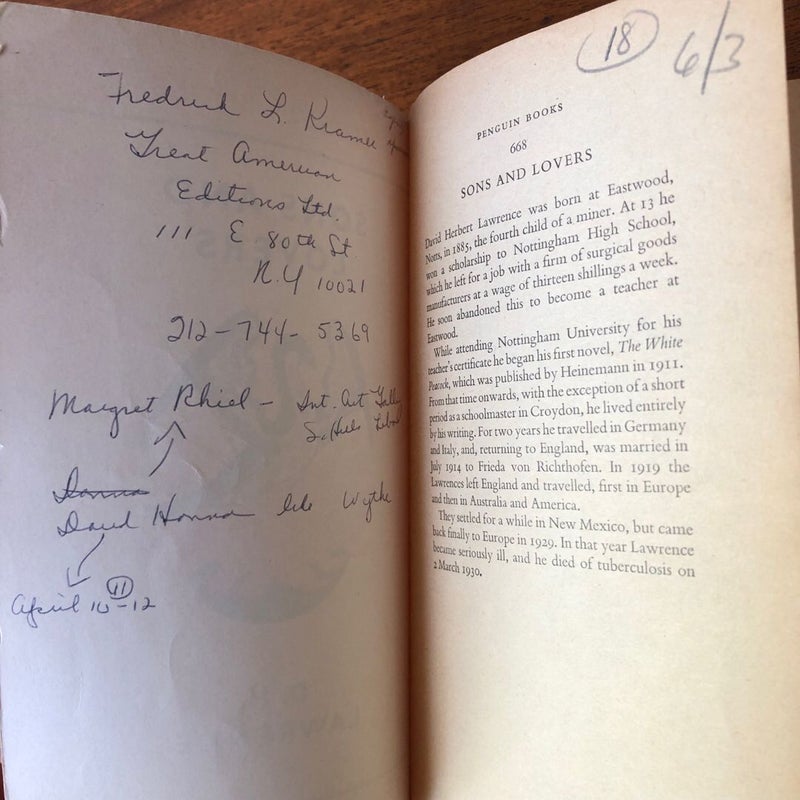 Fredrick L. Kramer
Great American
Editions Ltd.
111 E 80th St.
N.Y 10021
212-744-5369
Margret Rhiel - Int. Art
S.
Donna
David Hanna Wythe
April 10-12
11
18 6/3
PENGUIN BOOKS
668
SONS AND LOVERS
David Herbert Lawrence was born at Eastwood,
Notts, in 1885, the fourth child of a miner. At 13 he
won a scholarship to Nottingham High School,
which he left for a job with a firm of surgical goods
manufacturers at a wage of thirteen shillings a week.
He soon abandoned this to become a teacher at
Eastwood.
While attending Nottingham University for his
teacher's certificate he began his first novel, The White
Peacock, which was published by Heinemann in 1911.
From that time onwards, with the exception of a short
period as a schoolmaster in Croydon, he lived entirely
by his writing. For two years he travelled in Germany
and Italy, and, returning to England, was married in
July 1914 to Frieda von Richthofen. In 1919 the
Lawrences left England and travelled, first in Europe
and then in Australia and America.
They settled for a while in New Mexico, but came
back finally to Europe in 1929. In that year Lawrence
became seriously ill, and he died of tuberculosis on
2 March 1930.